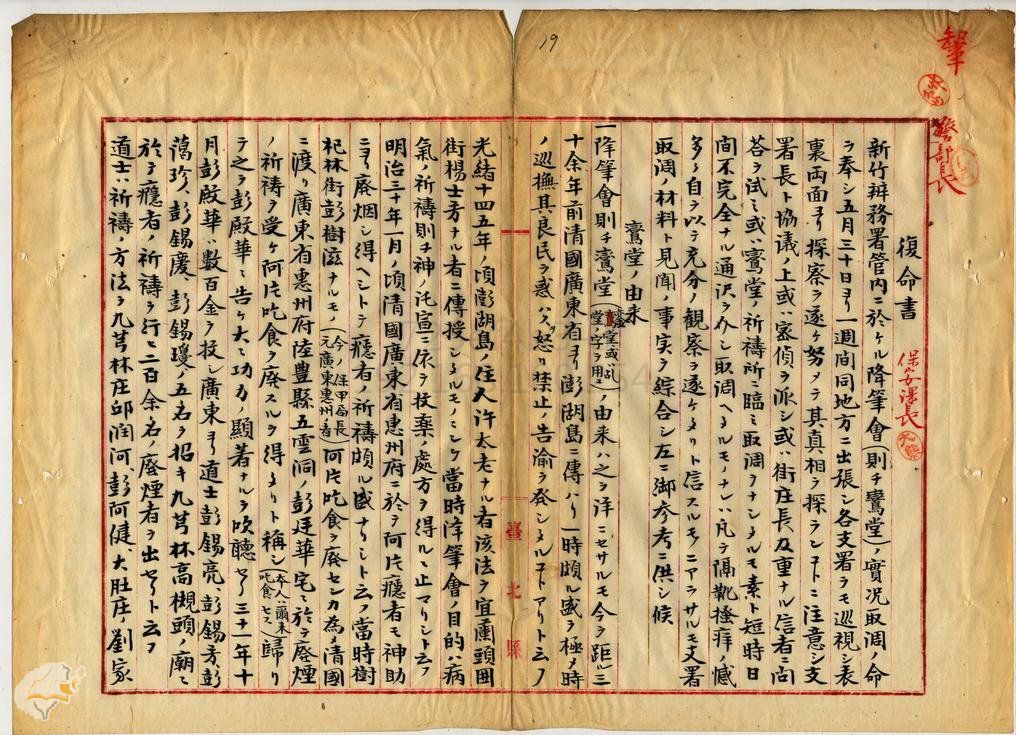 19
復命書
保安課長
警部長
新竹辨務署管內ニ於ケル降筆會(則チ鸞堂)ノ實况取調ノ命
ヲ奉シ五月三十日ヨリ一週間同地方ニ出張シ各支署ヲモ巡視シ表
裏両面ヨリ探察ヲ遂ケ努メテ其真相ヲ探ランコトニ注意シ支
署長ト協議ノ上或ハ密偵ヲ派シ或ハ街庄長及重ナル信者ニ問
荅ヲ試ミ或ハ鸞堂ノ祈禱所ニ臨ミ取調ヲナシタルモ素ト短時日
間不完全ナル通訳ヲ介シ取調ヘタルモノナレハ凡テ隔靴搔痒ノ憾
多ク自ラ以テ充分ノ観察ヲ遂ケタリト信スルモノニアラサルモ支署
取調ノ材料ト見聞ノ事実ヲ綜合シ左ニ御参考ニ供シ候
鸞堂ノ由来
一降筆會則チ鸞堂(鸞堂或ハ乩堂ノ字ヲ用ユ)ノ由来ハ之ヲ詳ニセサルモ今ヲ距ル三
十余年前清國廣東省ヨリ澎湖島ニ傳ハリ一時頗ル盛ヲ極メ時
ノ巡撫其良民ヲ惑ハスヲ怒リ禁止ノ告諭ヲ発シタルコトアリト云フ
光緒十四五年ノ頃澎湖島ノ住人許太老ナル者該法ヲ宜蘭頭囲
街楊士芳ナル者ニ傳授シタルモノニシテ當時降筆會ノ目的ハ病
氣ノ祈禱則チ神ノ託宣ニ依テ投薬ノ處方ヲ得ルニ止マリシト云フ
明治三十年一月ノ頃清國廣東省惠州府ニ於テ阿片癮者モ神助
ニヨリ廃烟シ得ヘシトテ癮者ノ祈禱頗ル盛ナリシト云フ當時樹
杞林街彭樹滋ナルモノ(今ノ保甲局長元廣東惠州ノ者)阿片吃食ヲ廃センカ為メ清國
ニ渡リ廣東省惠州府陸豊縣五雲洞ノ彭廷華宅ニ於テ廃煙
ノ祈禱ヲ受ケ阿片吃食ヲ廃スルヲ得タリト稱シ(本人ハ爾来吃食セス)歸リ
テ之ヲ彭殿華ニ告ケ大ニ功力ノ顯著ナルヲ吹聴セリ三十一年十
月彭殿華ハ數百金ヲ投シ廣東ヨリ道士彭錫亮、彭錫芳、彭
藹珍、彭錫慶、彭錫瓊ノ五名ヲ招キ九芎林高梘頭ノ廟ニ
於テ癮者ノ祈禱ヲ行ヒ二百余名ノ廃煙者ヲ出セリト云フ
道士ハ祈禱ノ方法ヲ九芎林庄邱潤河、彭阿健、大肚庄ノ劉家
臺北縣